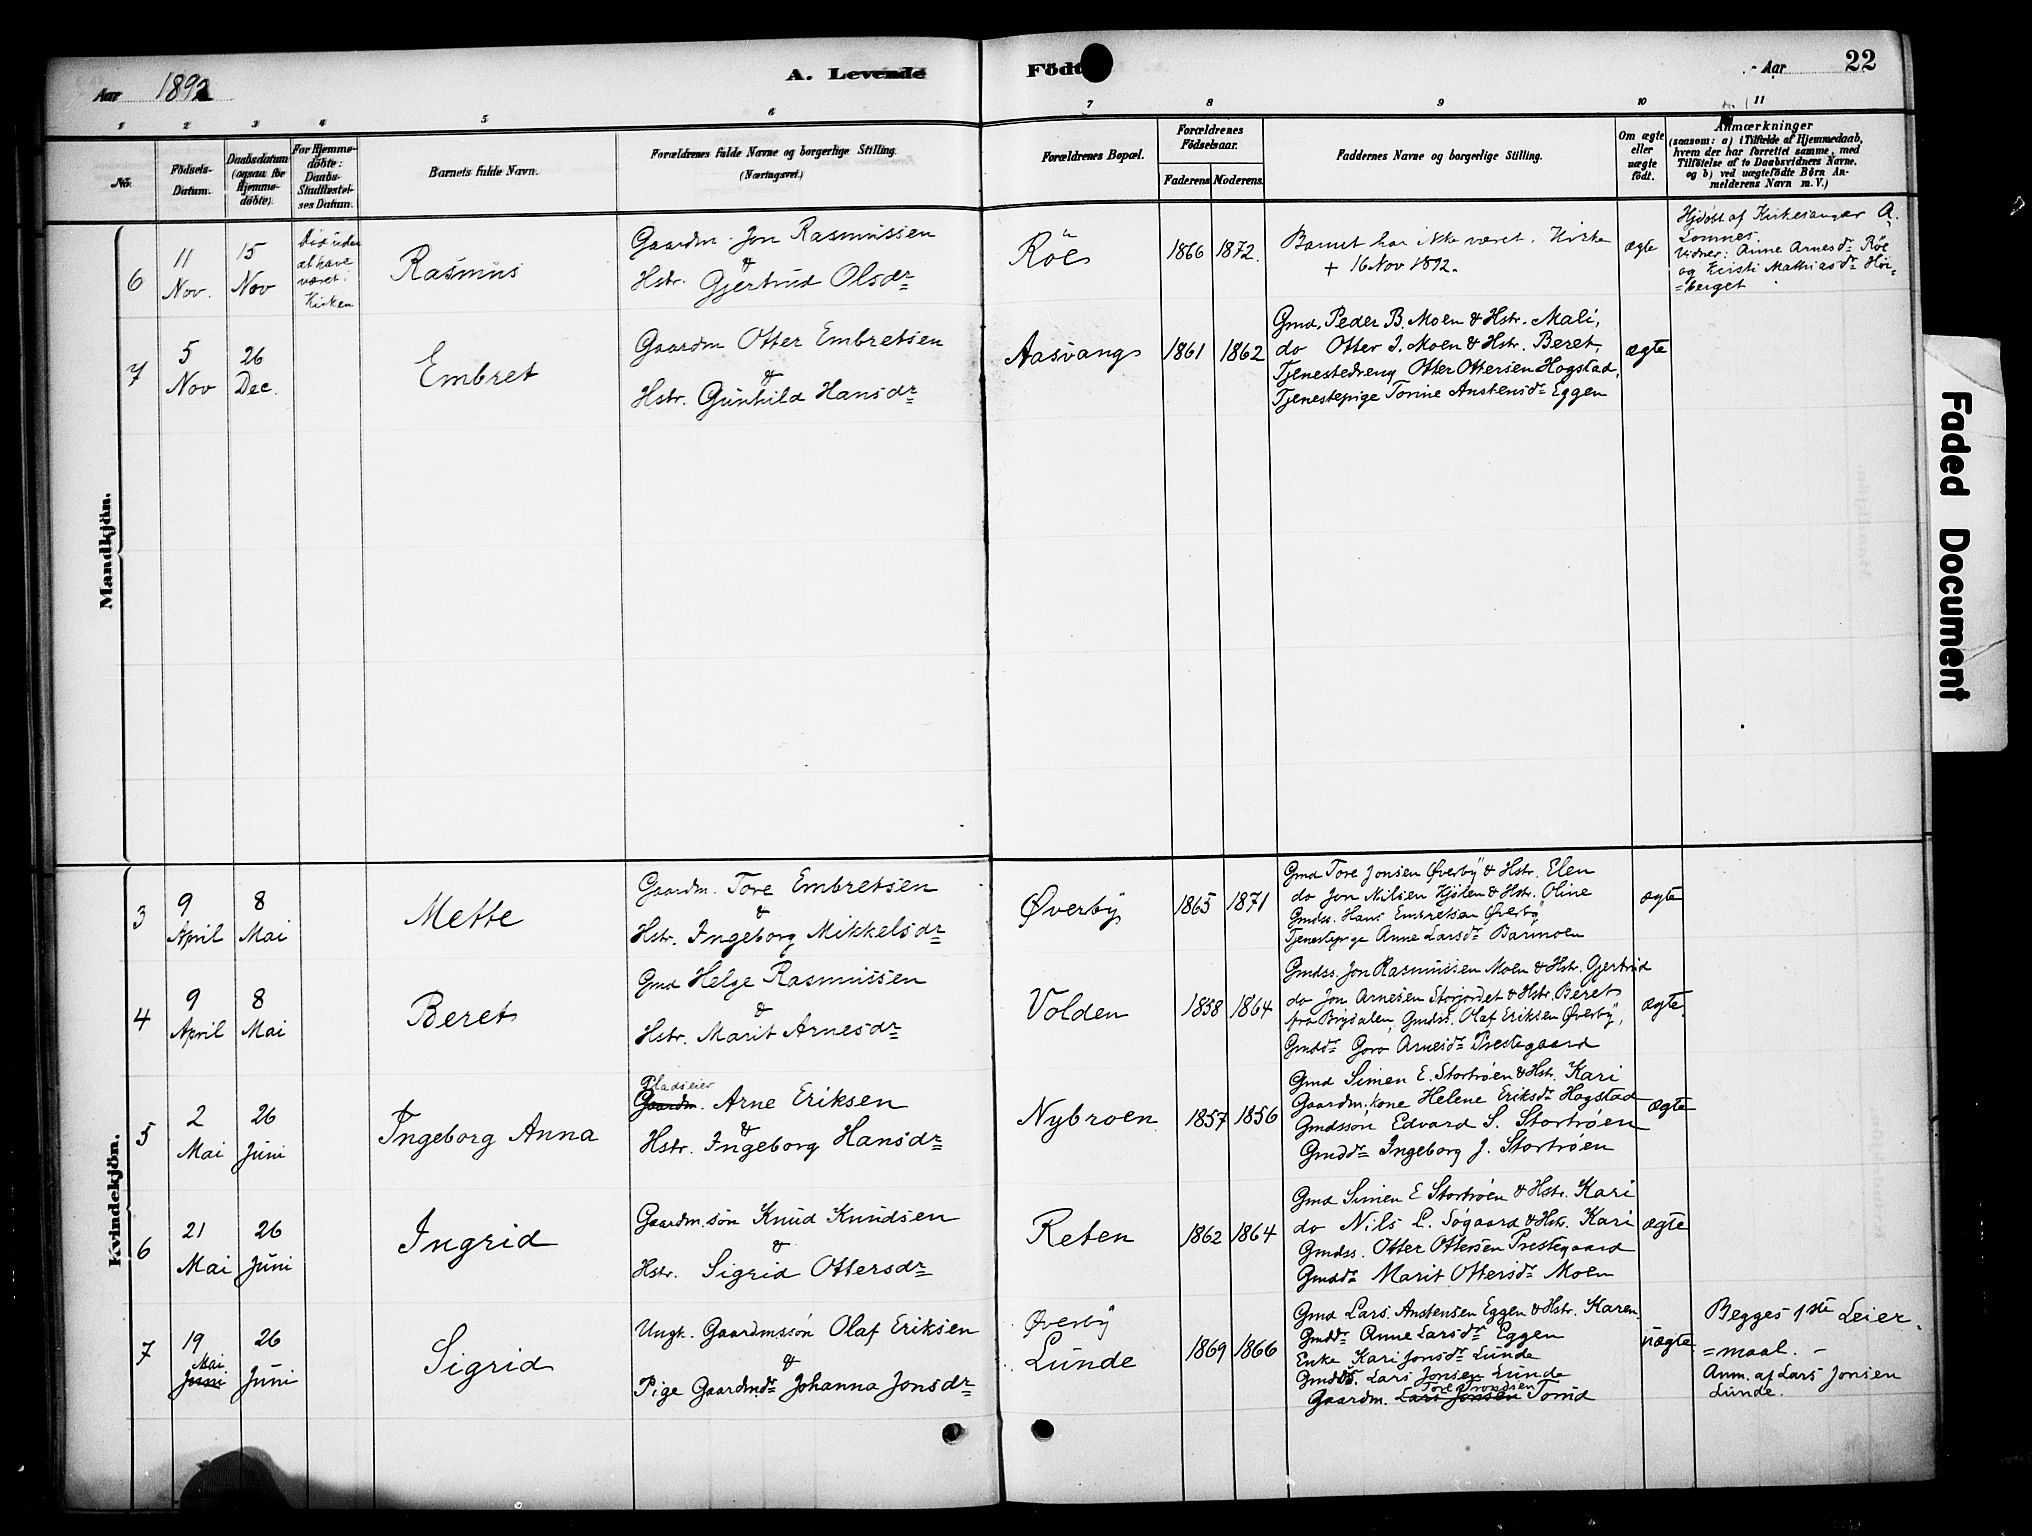 Aar 1892
A. Levende Födte
Aar 22
1 2 3 4 5 6 7 8 9 10 11
No.
Födsels-Datum.
Daabsdatum (ogsaa for Hjemmedøbte).
For Hjemmedøbte: Daabs-Stadfæstelses Datum.
Barnets fulde Navn.
Forældrenes fulde Navne og borgerlige Stilling.
(Næringsvei.)
Forældrenes Bopæl.
Forældrenes Födselsaar.
Faderens. Moderens.
Faddernes Navne og borgerlige Stilling.
Om ægte eller uægte födt.
Anmærkninger
(saasom: a) i Tilfælde af Hjemmedaab, hvem der har forrettet samme, med Tilføielse af to Daabsvidners Navne, og b) ved uægtefödte Börn Anmelderens Navn m. V.)
Mandkjön.
6
11 Nov.
15 Nov
Död uden at have været i Kirken
Rasmus
Gaardm. Jon Rasmussen
&
Hstr. Gjertrud Olsdr
Röe
1866 1872.
Barnet har ikke været i Kirke
+ 16 Nov 1892.
ægte
Hjdöbt af Kirkesanger A.
Tomnes
Vidner: Anne Arnesdr Röe
og Kirsti Mathiasdr Høi-
=berget
7
5 Nov
26 Dec.
Embret
Gaardm Otter Embretsen
&
Hstr. Gunhild Hansdr
Aasvang
1861 1862
Gmd. Peder B. Moen & Hstr. Mali,
do Otter J. Moen & Hstr. Beret,
Tjenestedreng Otter Ottersen Hogstad,
Tjenestepige Torine Anstensdr Eggen
ægte
Kvindekjön.
3
9 April
8 Mai
Mette
Gaardm. Tore Embretsen
&
Hstr. Ingeborg Mikkelsdr
Øverby
1865 1871
Gmd Tore Jonsen Øverby & Hstr. Elen
do Jon Nilsen Kjölen & Hstr. Oline
Gmdss. Hans Embretsen Øverby
Tjenestepige Anne Larsdr Barmoen
ægte
4
9 April
8 Mai
Beret
Gmd Helge Rasmussen
&
Hstr. Marit Arnesdr
Volden
1858 1864
Gmdss. Jon Rasmussen Moen & Hstr. Gjertrud
do Jon Arnesen Storjordet & Hstr. Beret
fra Brydalen, Gmdss. Olaf Eriksen Øverby,
Gmddr Goro Arnesdr Prestegaard
ægte.
5
2 Mai
26 Juni
Ingeborg Anna
Pladseier
Gaardm. Arne Eriksen
&
Hstr. Ingeborg Hansdr
Nybroen
1857 1856
Gmd Simen E. Stortröen & Hst. Kari
Gaardm.kone Helene Eriksdr Hogstad
Gmdssön Edvard S. Stortröen
Gmddr Ingeborg J. Stortröen
ægte
6
21 Mai
26 Juni
Ingrid
Gaardm.sön Knud Knudsen
&
Hstr. Sigrid Ottersdr
Reten
1862 1864
Gmd Simen E Stortröen & Hstr. Kari
do Nils L. Søgaard & Hstr. Kari
Gmdss. Otter Ottersen Prestegaard
Gmddr Marit Ottersdr Moen
ægte
7
19 Mai
Juni
26 Juni
Sigrid
Ungk. Gaardmssön Olaf Eriksen
&
Pige Gaardmdr Johanna Jonsdr
Øverby
Lunde
1869 1866
Gmd Lars Anstensen Eggen & Hstr. Karen
Gmddr Anne Larsdr Eggen
Enke Kari Jonsdr Lunde
Gmdss. Lars Jonsen Lunde
Tore Trondsen
Gaardm. Lars Jonsen Tomd
uægte
Begges 1ste Leier-
=maal. -
Anm. af Lars Jonsen
Lunde.
Faded Document